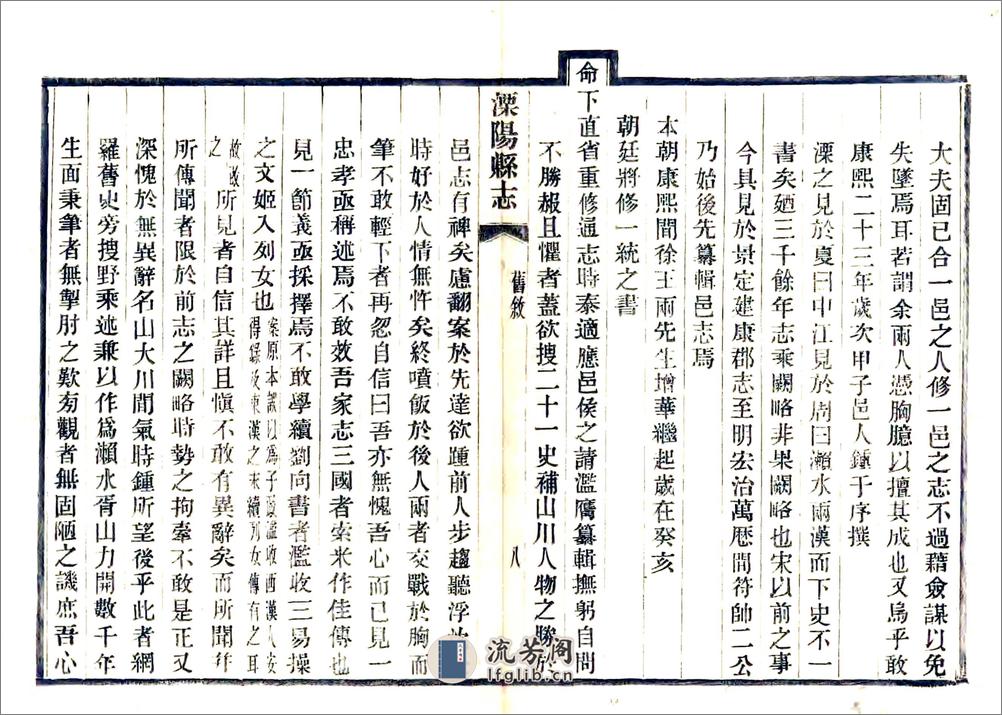 大夫固已合一邑之人修一邑之志不過藉僉謀以免
失墜焉耳若謂余兩人憑胸臆以擅其成也又烏乎敢
康熙二十三年歲次甲子邑人鍾于序撰
溧之見於夏曰中江見於周曰瀨水兩漢而下史不一
書矣廼三千餘年志乘闕略非果闕略也宋以前之事
今具見於景定建康郡志至明宏治萬歷間符帥二公
乃始後先纂輯邑志焉
本朝康熙間徐王兩先生增華繼起歲在癸亥
朝廷將修一統之書
命下直省重修通志時泰適應邑侯之請濫膺纂輯撫躬自問
不勝赧且懼者蓋欲搜二十一史補山川人物之勝於
溧陽縣志
舊敘
八
邑志有裨矣慮翻案於先達欲踵前人步趨聽浮
時好於人情無忤矣終噴飯於後人兩者交戰於胸而
筆不敢輕下者再忽自信曰吾亦無愧吾心而已見一
忠孝亟稱述焉不敢效吾家志三國者索米作佳傳也
見一節義亟採擇焉不敢學續劉向書者濫收三易操
之文姬入列女也案原本誤以爲子政濫收西漢人安
得錄及東漢之末續列女傳有之耳
故改
之
所見者自信其詳且愼不敢有異辭矣而所聞年
所傳聞者限於前志之闕略時勢之拘牽不敢是正又
深愧於無異辭名山大川間氣時鍾所望後乎此者網
羅舊史旁搜野乘述兼以作爲瀨水胥山力開數千年
生面秉筆者無掣肘之歎夯觀者無固陋之譏庶吾心
流芳阁
lfglib.cn